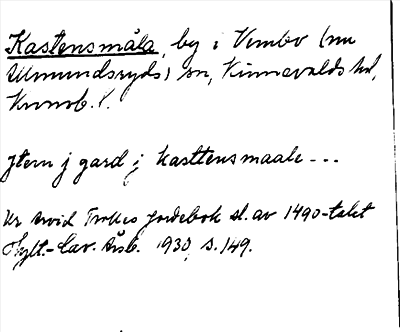 Kastensmåla, by i Vembo (nu
Ulmundsryds) sn, Kinnevalds hd,
Kronob. l.
Jtem j gard j kasttensmaale ---
Ur Arvid Trolles jordebok sl. av 1490-talet
Hylt.-Cav. Årsb. 1930, s. 149.